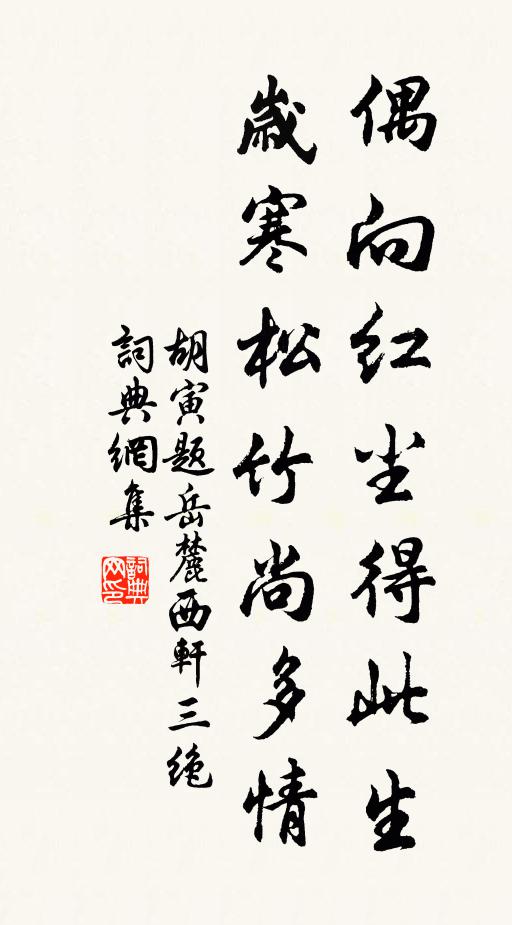 偶向红尘得此生
歳寒松竹尚多情
胡寅题岳麓西軒三绝
詞典網集
詞典网印